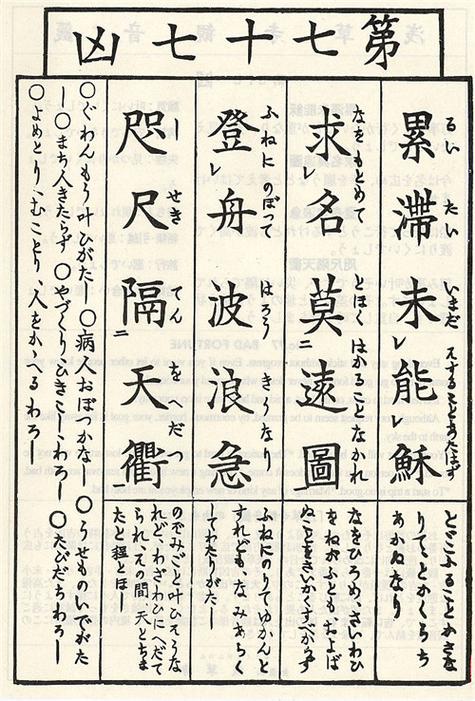 第七十七凶
累滞未レ能レ穌
るい たい いまだ
とどこふることかさな
りてとかくらち
あかぬなり
求レ名莫二遠圖
なをもとめて とほく はかることなかれ
なをひろめ、さいわひ
をねがふともおよば
ぬことをさいかくすべからず
登レ舟波浪急
ふねにのぼって はろう きな
ふねにのりてゆかんと
すれども、なみあらく
てわたりがた
咫尺隔二天衢一
しせき てんを だつ
のぞみごと叶ひそうな
れど、わざわひにへだて
られ、その間天とちま
たと程とほし
○ぐわんもう叶ひがたし ○病人おぼつかな ○うせものでがた
し ○まち人きたらず ○やづくりひきこしわろし ○たびだちわろし
○よめとり、むことり、人をかかへるわろし